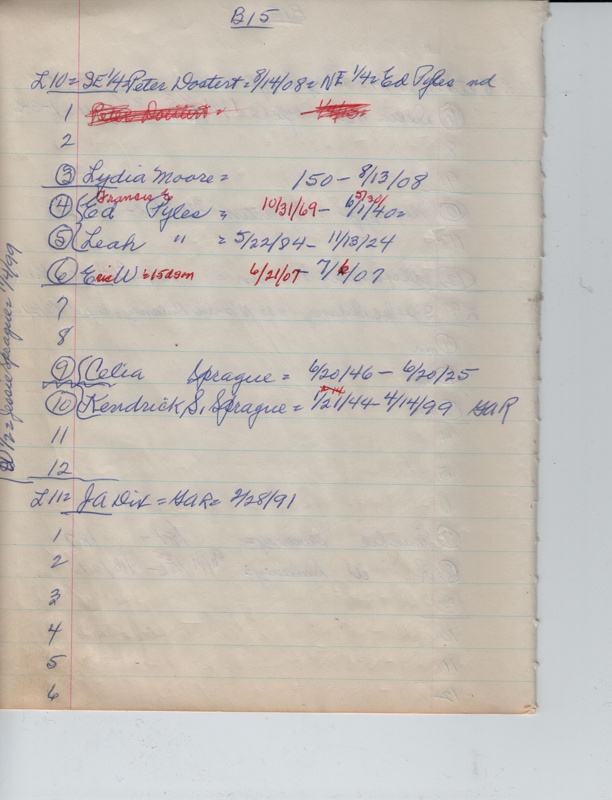 B15
L10 = SE 1/4 Peter Dostert = 8/14/08 = NE 1/4 = Ed Pyles nd
1 Peter Dostert =
2
3 Lydia Moore = 150 - 8/13/08
Francis E
4 Ed Pyles = 10/31/69 - 6/1/40 =
5/30/
5 Leah " = 5/22/84 - 11/13/24
6 Eric W = 15d3m 6/21/07 - 7/6/07
7
8
9 Celia Sprague = 6/20/46 - 6/20/25
10 Kendrick S. Sprague = 1/21/44 - 4/14/99 GAR
11
12
L11 = JA Dix = GAR = 2/28/91
1
2
3
4
5
6
1/2 = Jessie Sprague = 1/4/99